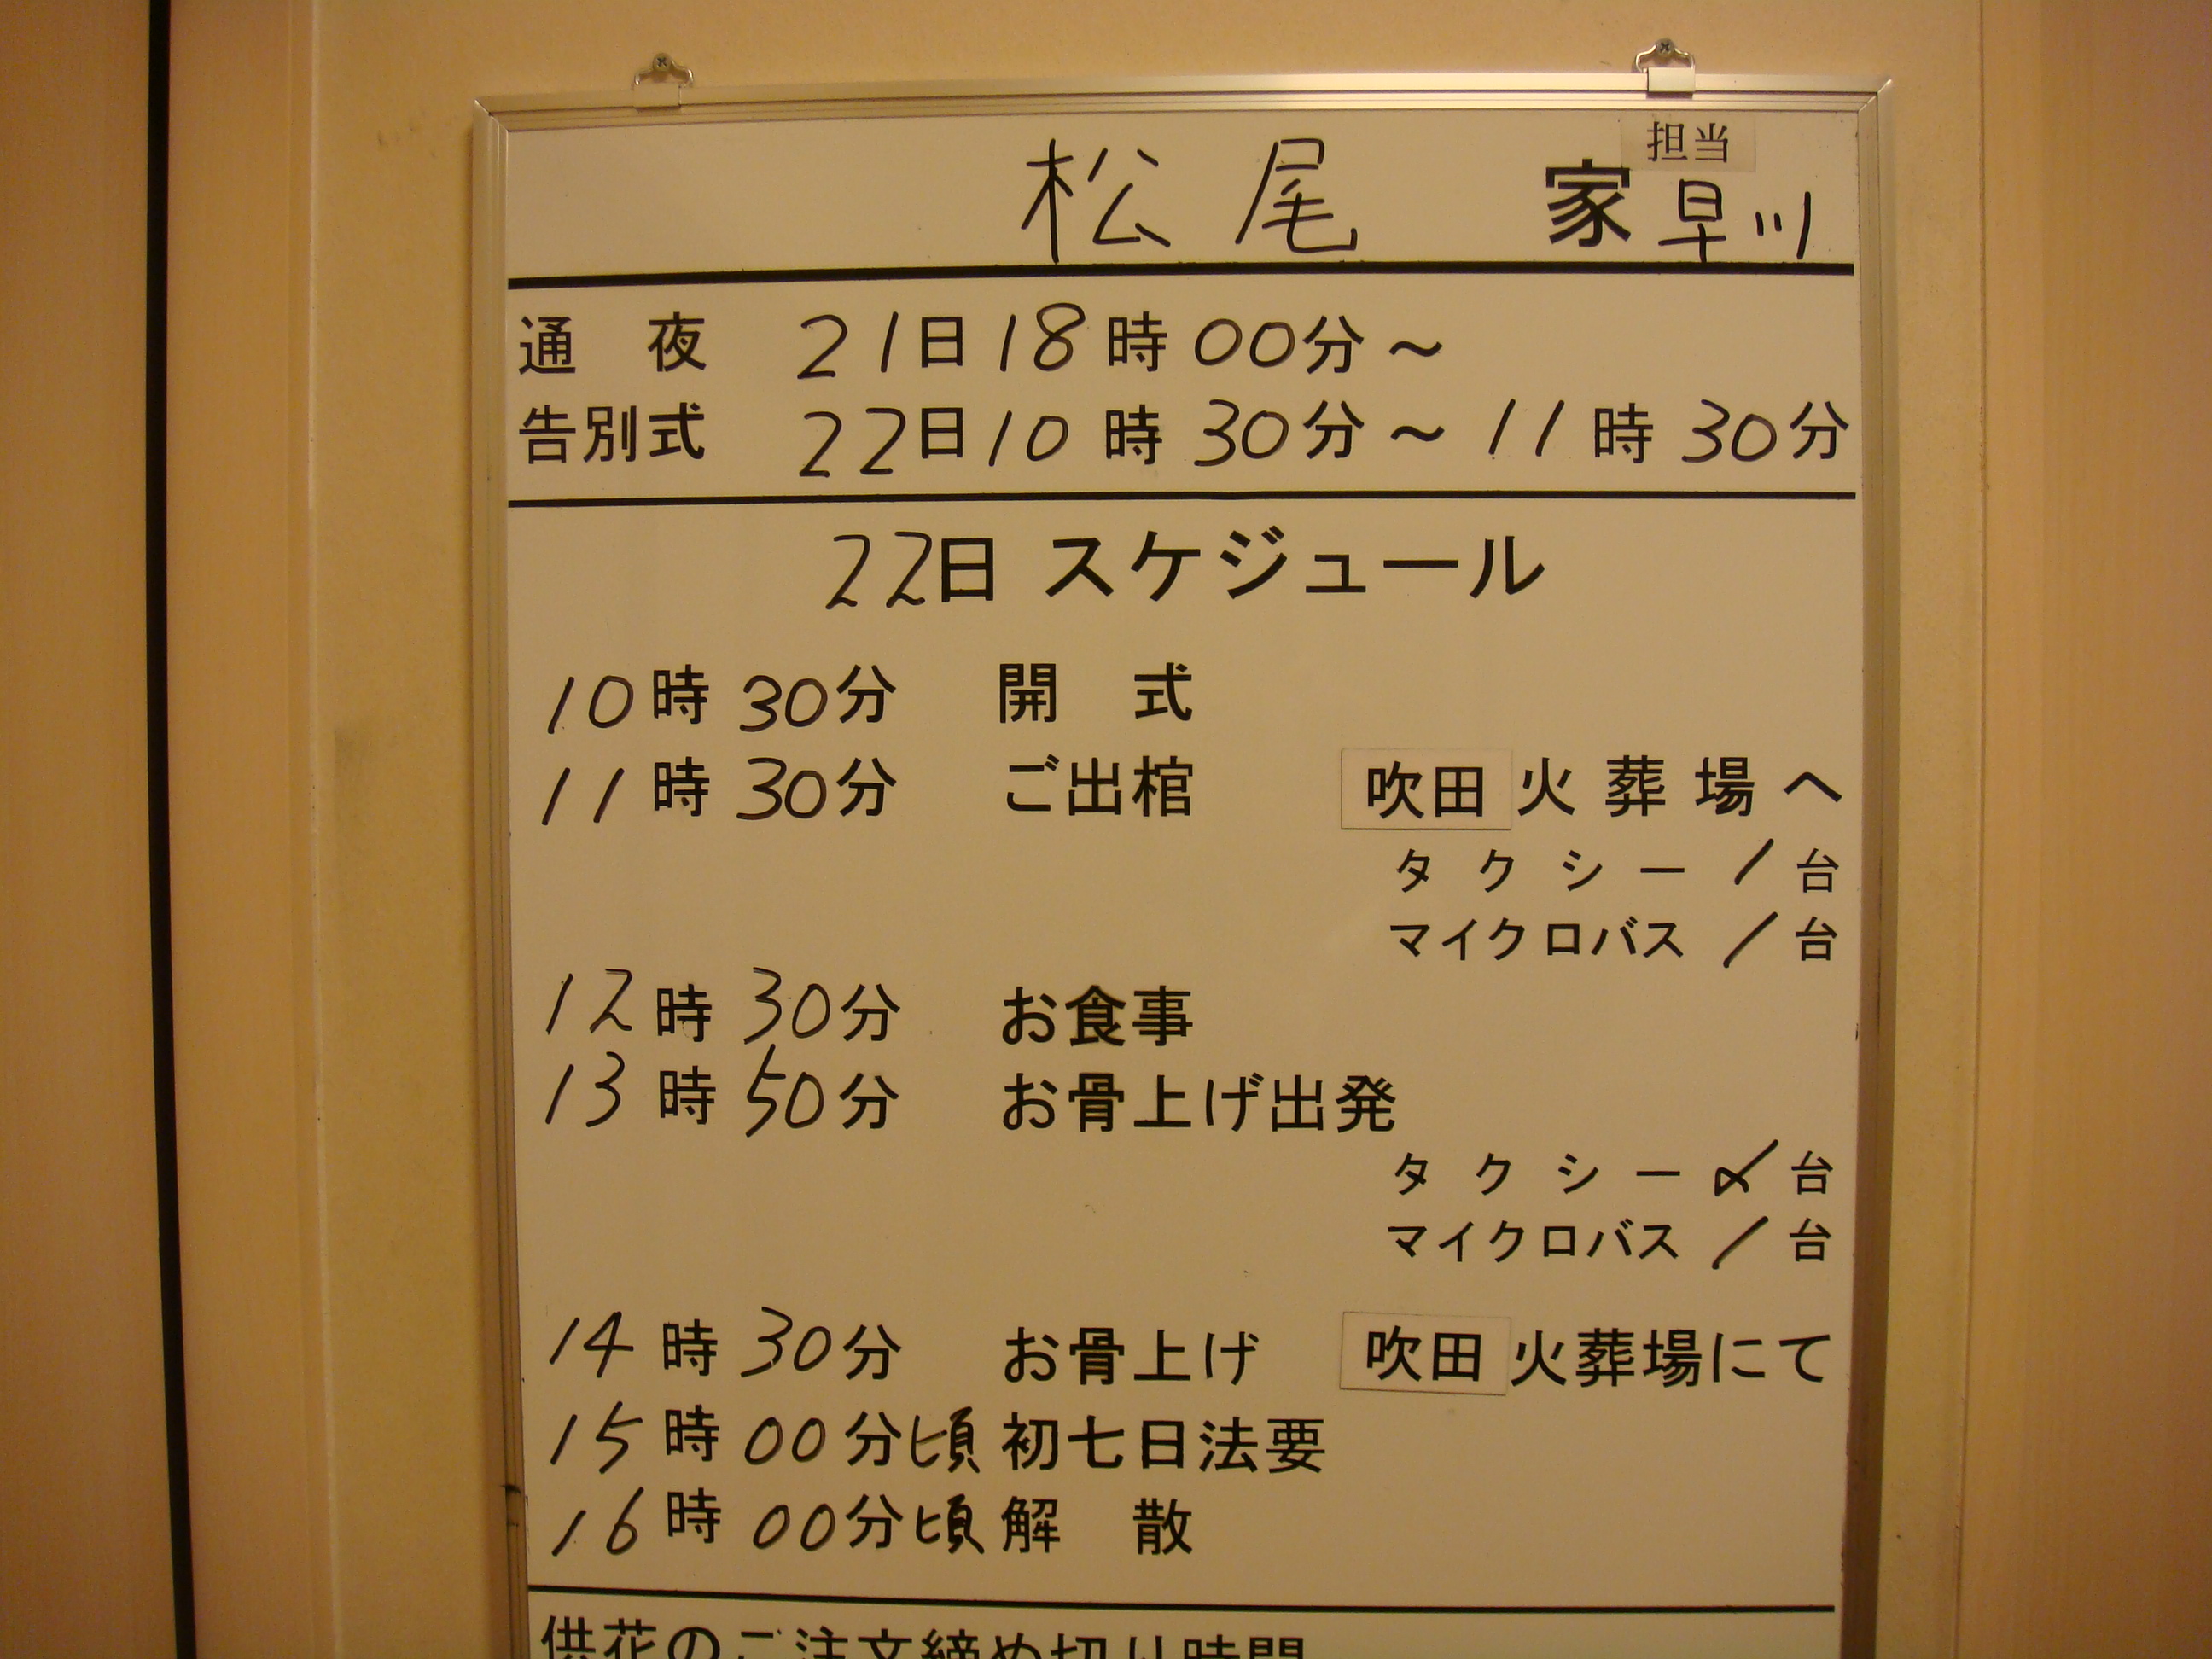 担当
松尾 家 早川
通 夜 21日18時00分～
告別式 22日10時30分～11時30分
22日 スケジュール
10時30分 開 式
11時30分 ご出棺 吹田 火葬場へ
タクシー 1台
マイクロバス 1台
12時30分 お食事
13時50分 お骨上げ出発
タクシー 台
マイクロバス 1台
14時30分 お骨上げ 吹田 火葬場にて
15時00分頃 初七日法要
16時00分頃 解 散
供花のご注文締め切り時間